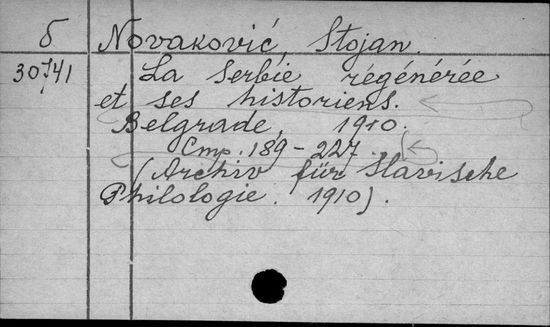 б Novaković, Stojan.
30741 La Serbie régénérée
et ses historiens.
Belgrade, 1910.
Стр. 189-227.
(Archiv für Slavische
Philologie. 1910).